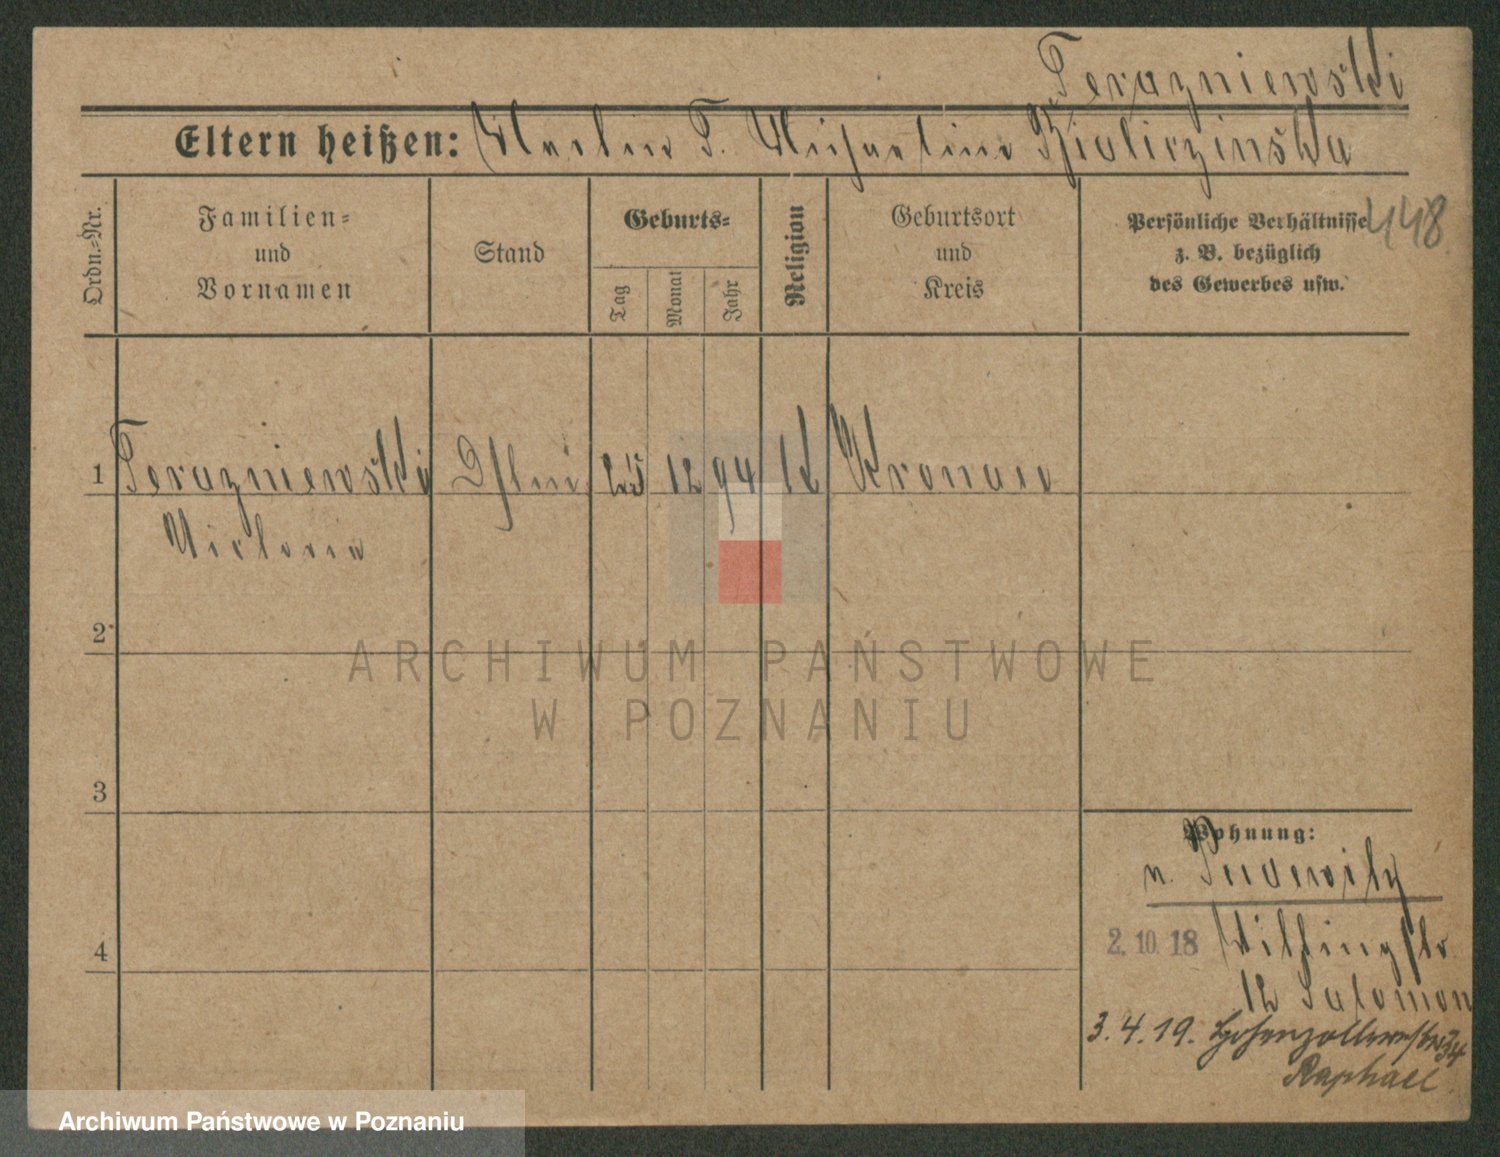 Peruzniewski
Eltern heißen: Martin P. Michaelina
448
Ordn.-Nr.
Familien- und Vornamen
Stand
Geburts-
Tag
Monat
Jahr
Religion
Geburtsort und Kreis
Persönliche Verhältnisse z. B. bezüglich des Gewerbes usw.
1 Peruzniewski 25 12 94 k Kronau
Victoria
2
3
4
Wohnung:
v. Pudewitz
2. 10. 18
12 Salomon
3. 4. 19. Hohenzollernstr 34
Raphael
ARCHIWUM PAŃSTWOWE
W POZNANIU
Archiwum Państwowe w Poznaniu